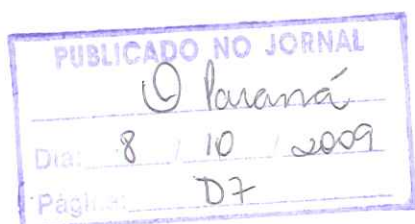 PUBLICADO NO JORNAL
O Paraná
Dia: 8 / 10 / 2009
Página: D7